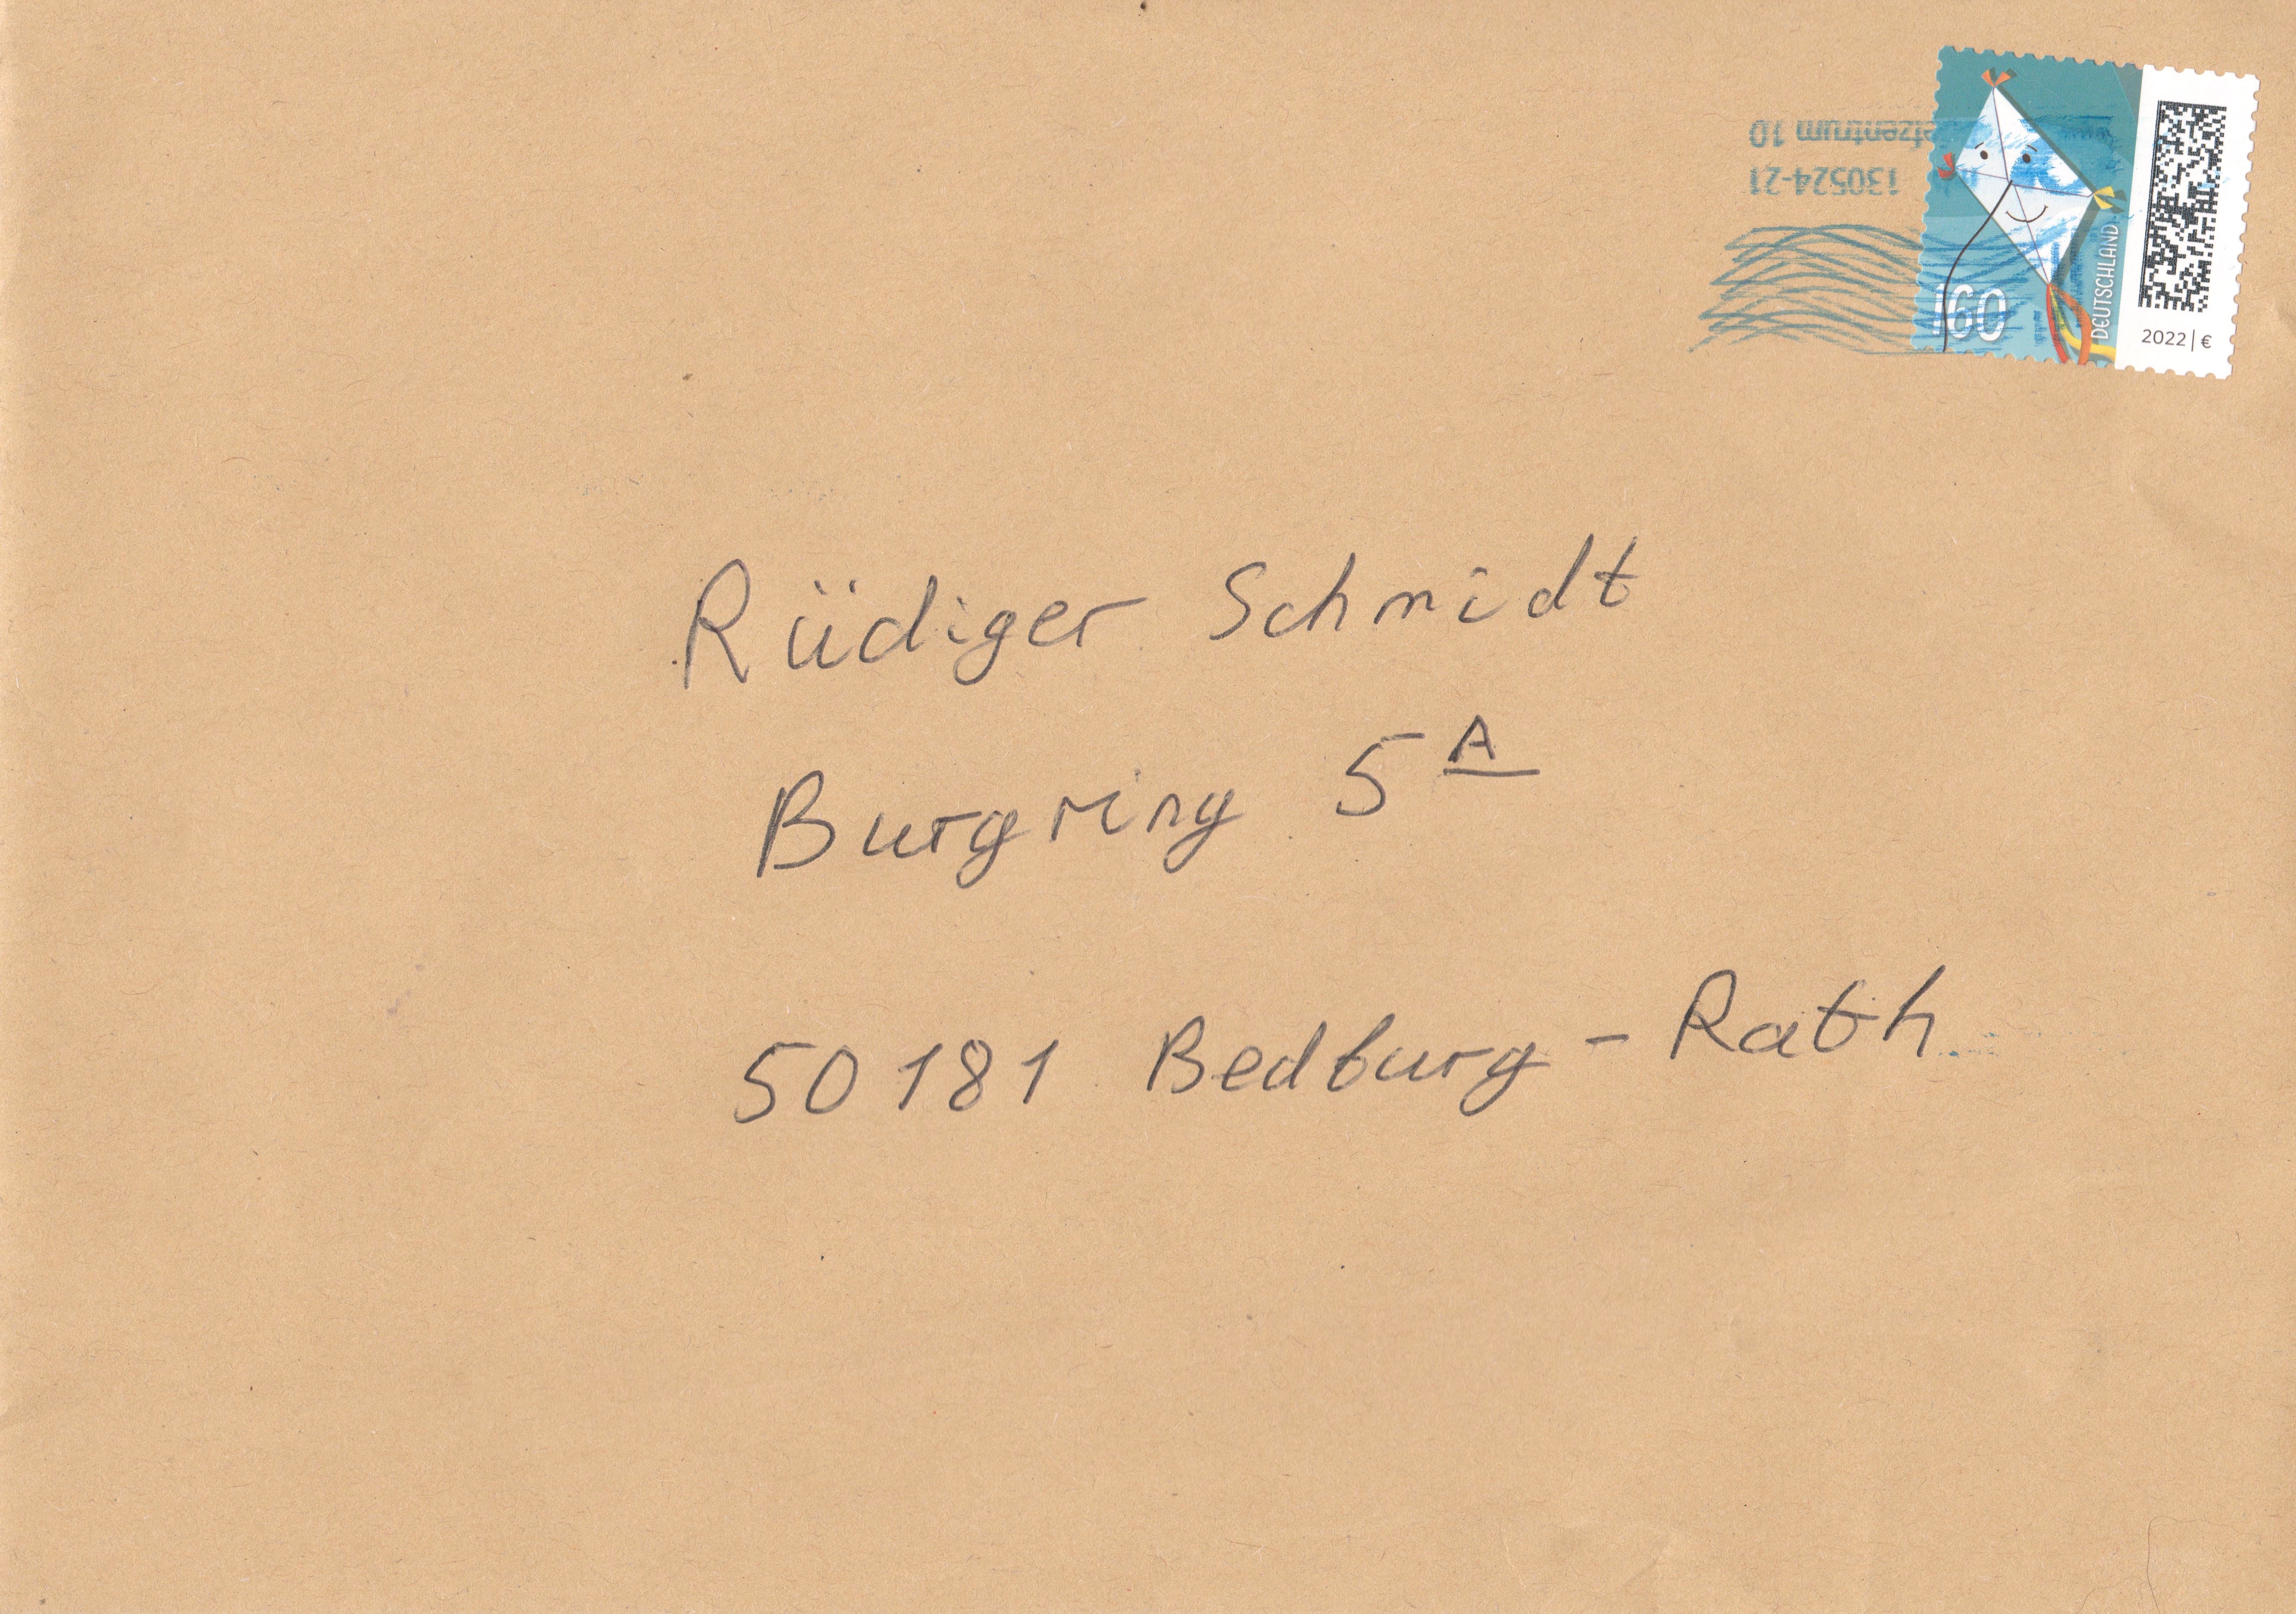 Briefzentrum 10
130524-21
160
DEUTSCHLAND
2022 | €
Rüdiger Schmidt
Burgring 5A
50181 Bedburg - Rath